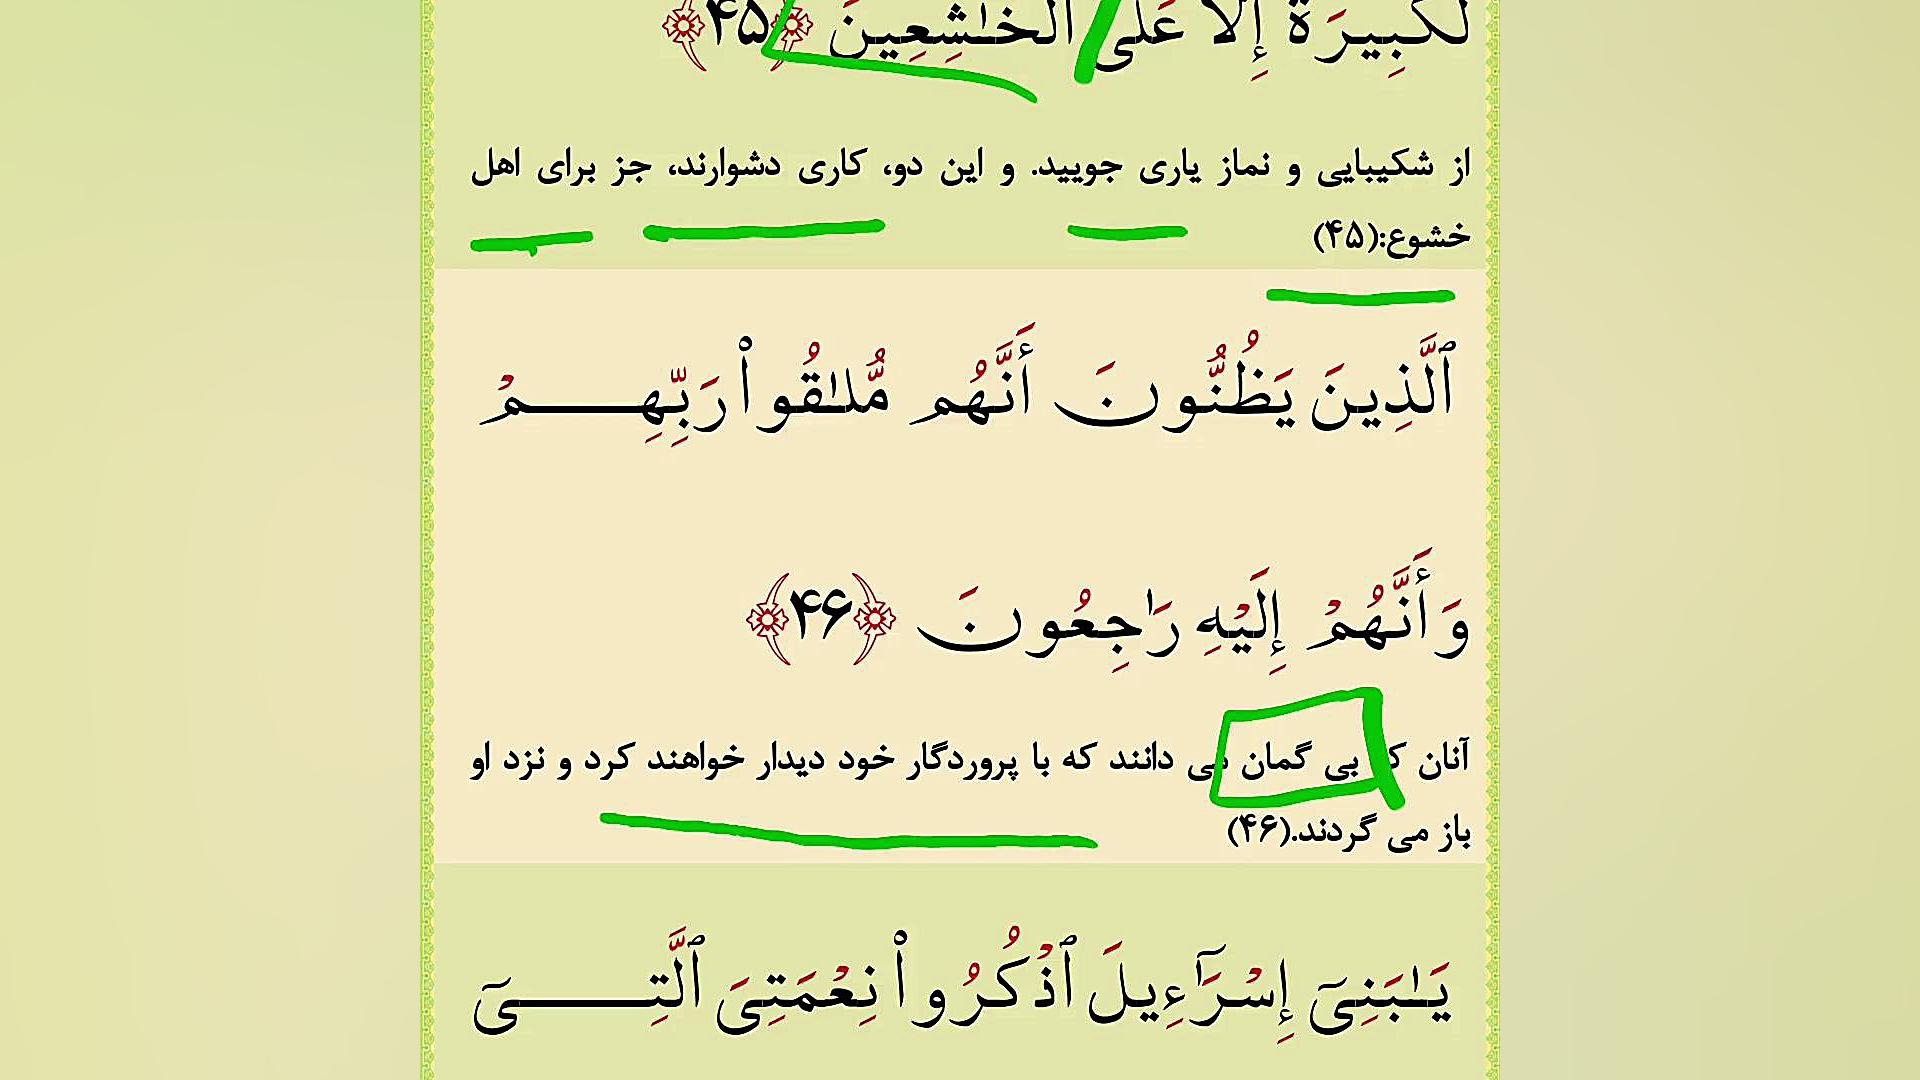 لَكَبِيرَةٌ إِلَّا عَلَى الْخَـٰشِعِينَ ﴿۴۵﴾
از شکیبایی و نماز یاری جویید. و این دو، کاری دشوارند، جز برای اهل
خشوع:(۴۵)
ٱلَّذِينَ يَظُنُّونَ أَنَّهُم مُّلَـٰقُوا۟ رَبِّهِمْ
وَأَنَّهُمْ إِلَيْهِ رَٰجِعُونَ ﴿۴۶﴾
آنان که بی گمان می دانند که با پروردگار خود دیدار خواهند کرد و نزد او
باز می گردند.(۴۶)
يَـٰبَنِىٓ إِسْرَٰٓءِيلَ ٱذْكُرُوا۟ نِعْمَتِىَ ٱلَّتِىٓ